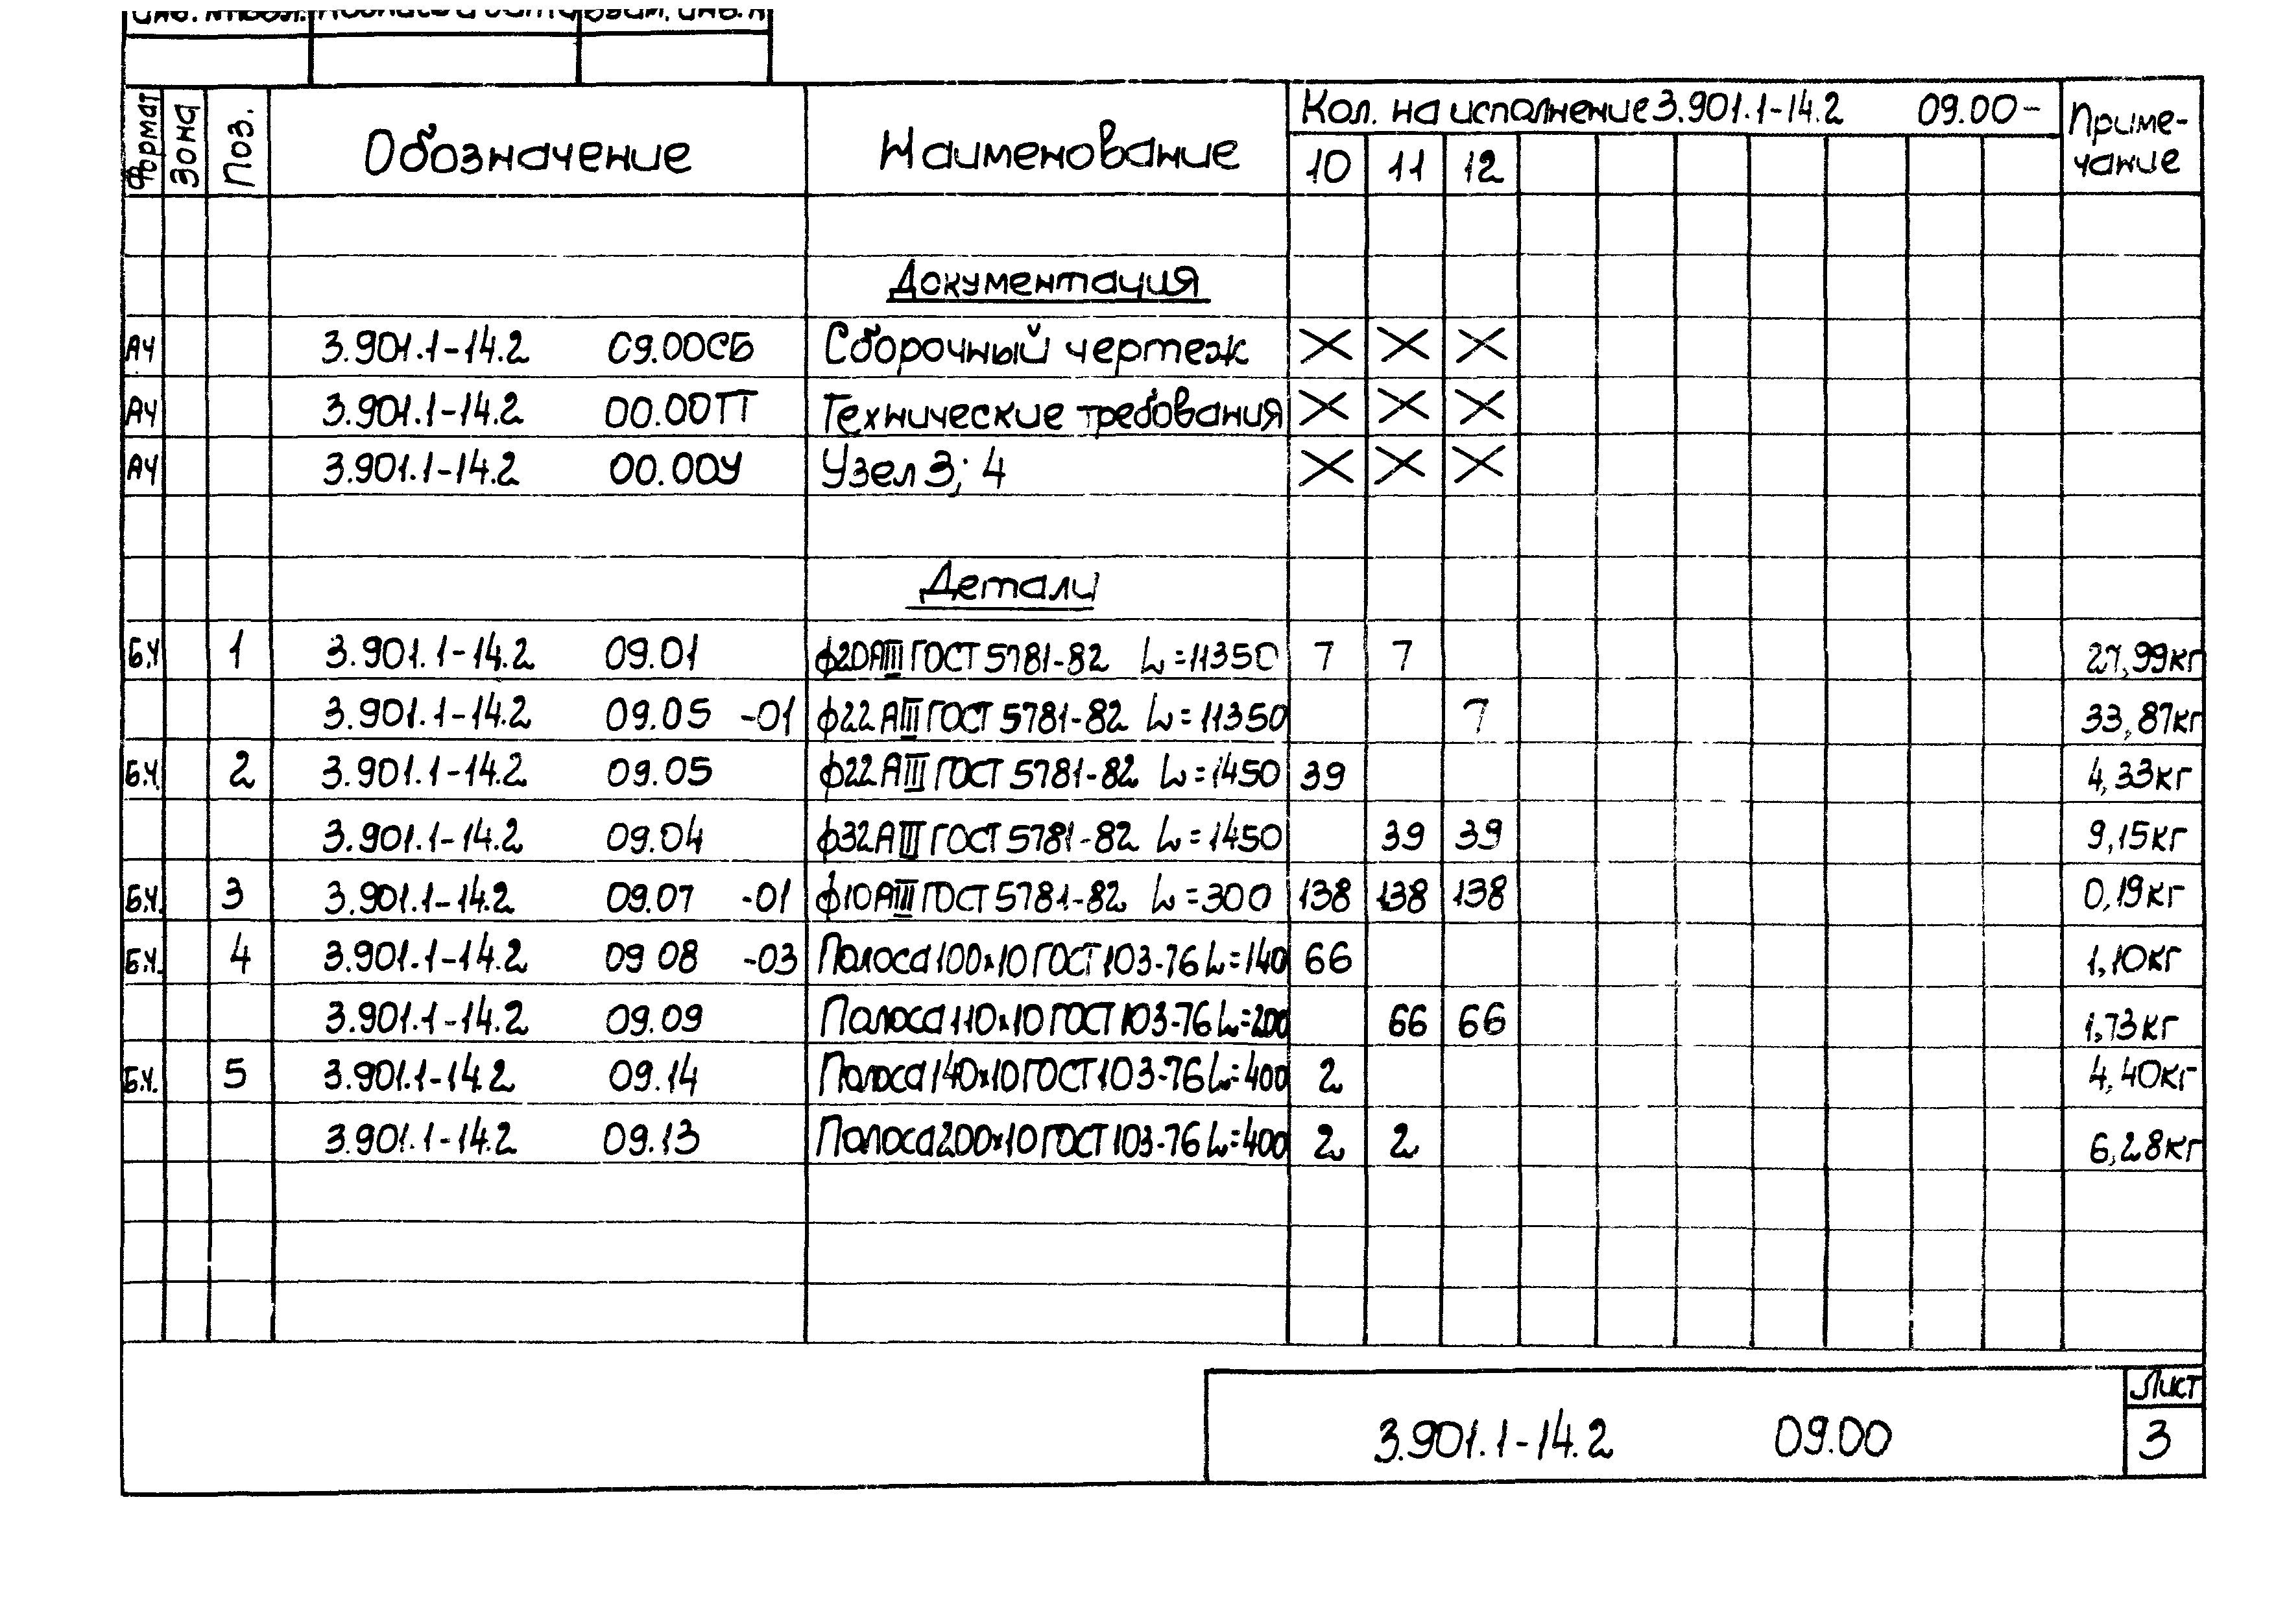 Формат Зона Поз. Обозначение Наименование Кол. на исполнение 3.901.1-14.2 09.00- Приме-
чание
10 11 12
Документация
А4 3.901.1-14.2 09.00СБ Сборочный чертеж X X X
А4 3.901.1-14.2 00.00ТТ Технические требования X X X
А4 3.901.1-14.2 00.00У Узел 3; 4 X X X
Детали
Б.Ч 1 3.901.1-14.2 09.01 ф20АIII ГОСТ 5781-82 L=11350 7 7 27,99кг
3.901.1-14.2 09.05 -01 ф22АIII ГОСТ 5781-82 L=11350 7 33,87кг
Б.Ч. 2 3.901.1-14.2 09.05 ф22АIII ГОСТ 5781-82 L=1450 39 4,33кг
3.901.1-14.2 09.04 ф32АIII ГОСТ 5781-82 L=1450 39 39 9,15кг
Б.Ч. 3 3.901.1-14.2 09.07 -01 ф10АIII ГОСТ 5781-82 L=300 138 138 138 0,19кг
Б.Ч. 4 3.901.1-14.2 09 08 -03 Полоса 100х10 ГОСТ 103-76 L=140 66 1,10кг
3.901.1-14.2 09.09 Полоса 110х10 ГОСТ 103-76 L=200 66 66 1,73кг
Б.Ч. 5 3.901.1-14.2 09.14 Полоса 140х10 ГОСТ 103-76 L=400 2 4,40кг
3.901.1-14.2 09.13 Полоса 200х10 ГОСТ 103-76 L=400 2 2 6,28кг
3.901.1-14.2 09.00 Лист
3